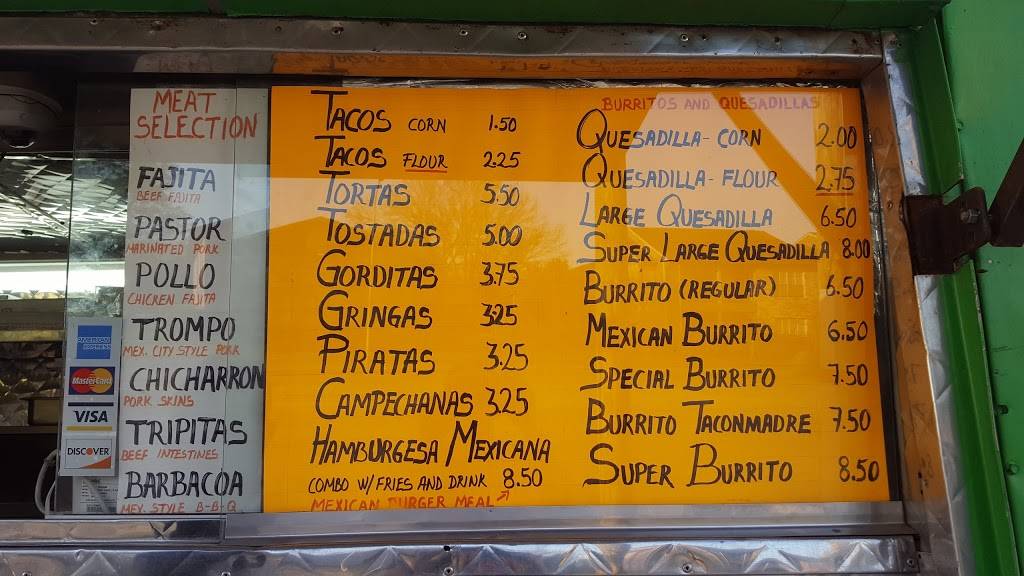 MEAT
SELECTION
FAJITA
BEEF FAJITA
PASTOR
MARINATED PORK
POLLO
CHICKEN FAJITA
TROMPO
MEX. CITY STYLE PORK
CHICHARRON
PORK SKINS
TRIPITAS
BEEF INTESTINES
BARBACOA
MEX. STYLE B-B-Q
AMERICAN EXPRESS
MasterCard
VISA
DISCOVER
TACOS CORN 1.50
TACOS FLOUR 2.25
TORTAS 5.50
TOSTADAS 5.00
GORDITAS 3.75
GRINGAS 3.25
PIRATAS 3.25
CAMPECHANAS 3.25
HAMBURGESA MEXICANA
COMBO W/ FRIES AND DRINK 8.50
MEXICAN BURGER MEAL
BURRITOS AND QUESADILLAS
QUESADILLA - CORN 2.00
QUESADILLA - FLOUR 2.75
LARGE QUESADILLA 6.50
SUPER LARGE QUESADILLA 8.00
BURRITO (REGULAR) 6.50
MEXICAN BURRITO 6.50
SPECIAL BURRITO 7.50
BURRITO TACONMADRE 7.50
SUPER BURRITO 8.50